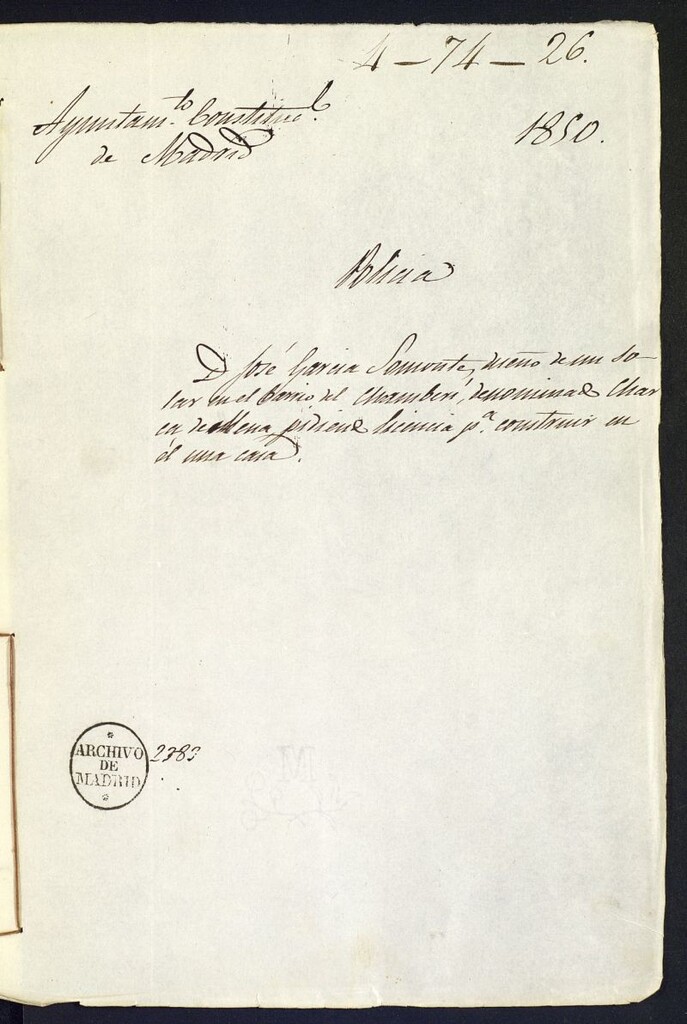 4-74-26.
Ayuntam.to Constitucl.
de Madrid
1850.
Policia
D José Garcia Somonte, dueño de un so-
lar en el barrio del Chamberí, denominado Char
ca de Mena pidiendo licencia pa. construir en
él una casa.
ARCHIVO
DE
MADRID
2383